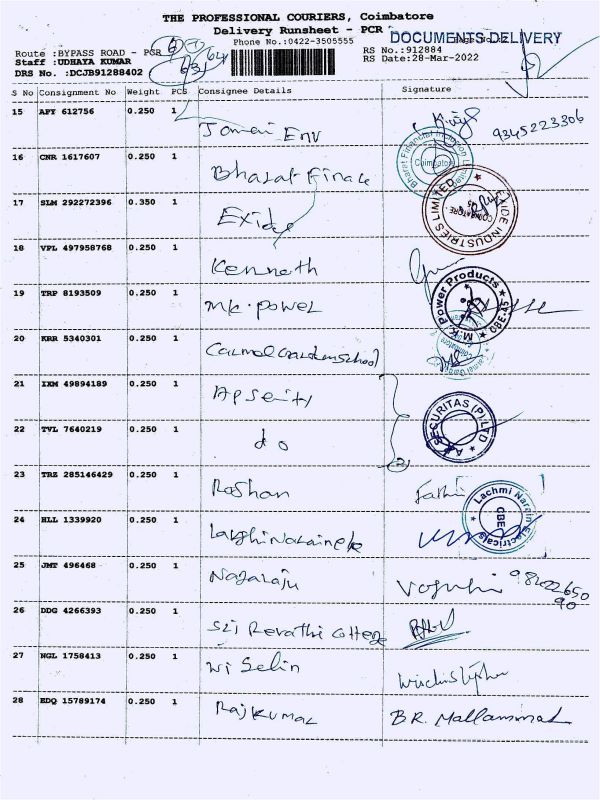 THE PROFESSIONAL COURIERS, Coimbatore
Delivery Runsheet - PCR
DOCUMENTS DELIVERY
Phone No.:0422-3505555
Route :BYPASS ROAD - PCR
RS No.:912884
Staff :UDHAYA KUMAR
RS Date:28-Mar-2022
DRS No. :DCJB91288402
63, 64
S No Consignment No Weight PCS Consignee Details Signature
15 APY 612756 0.250 1 Env 9345223306
Bharat Financial Inclusion Limited Coimbatore
16 CNR 1617607 0.250 1 Bharat Finace
17 SLM 292272396 0.350 1 Exide
EXIDE INDUSTRIES LIMITED COIMBATORE
18 VPL 497958768 0.250 1 Kenneth
19 TRP 8193509 0.250 1 MK. Power
M.K. Power Products CBE-45
20 KRR 5340301 0.250 1 Carmal Garden School
21 IXM 49894189 0.250 1 AP Seurity
22 TVL 7640219 0.250 1 do
AP SECURITAS (P) LTD
23 TRZ 285146429 0.250 1 Roshan Fathi
24 HLL 1339920 0.250 1
Lachmi Narain Electricals CBE
25 JMT 496468 0.250 1 Nagaraju
26 DDG 4266393 0.250 1 Sri Revathi College
27 NGL 1758413 0.250 1 Wi Selin
28 EDQ 15789174 0.250 1 Rajkumar B.R. Mallammal